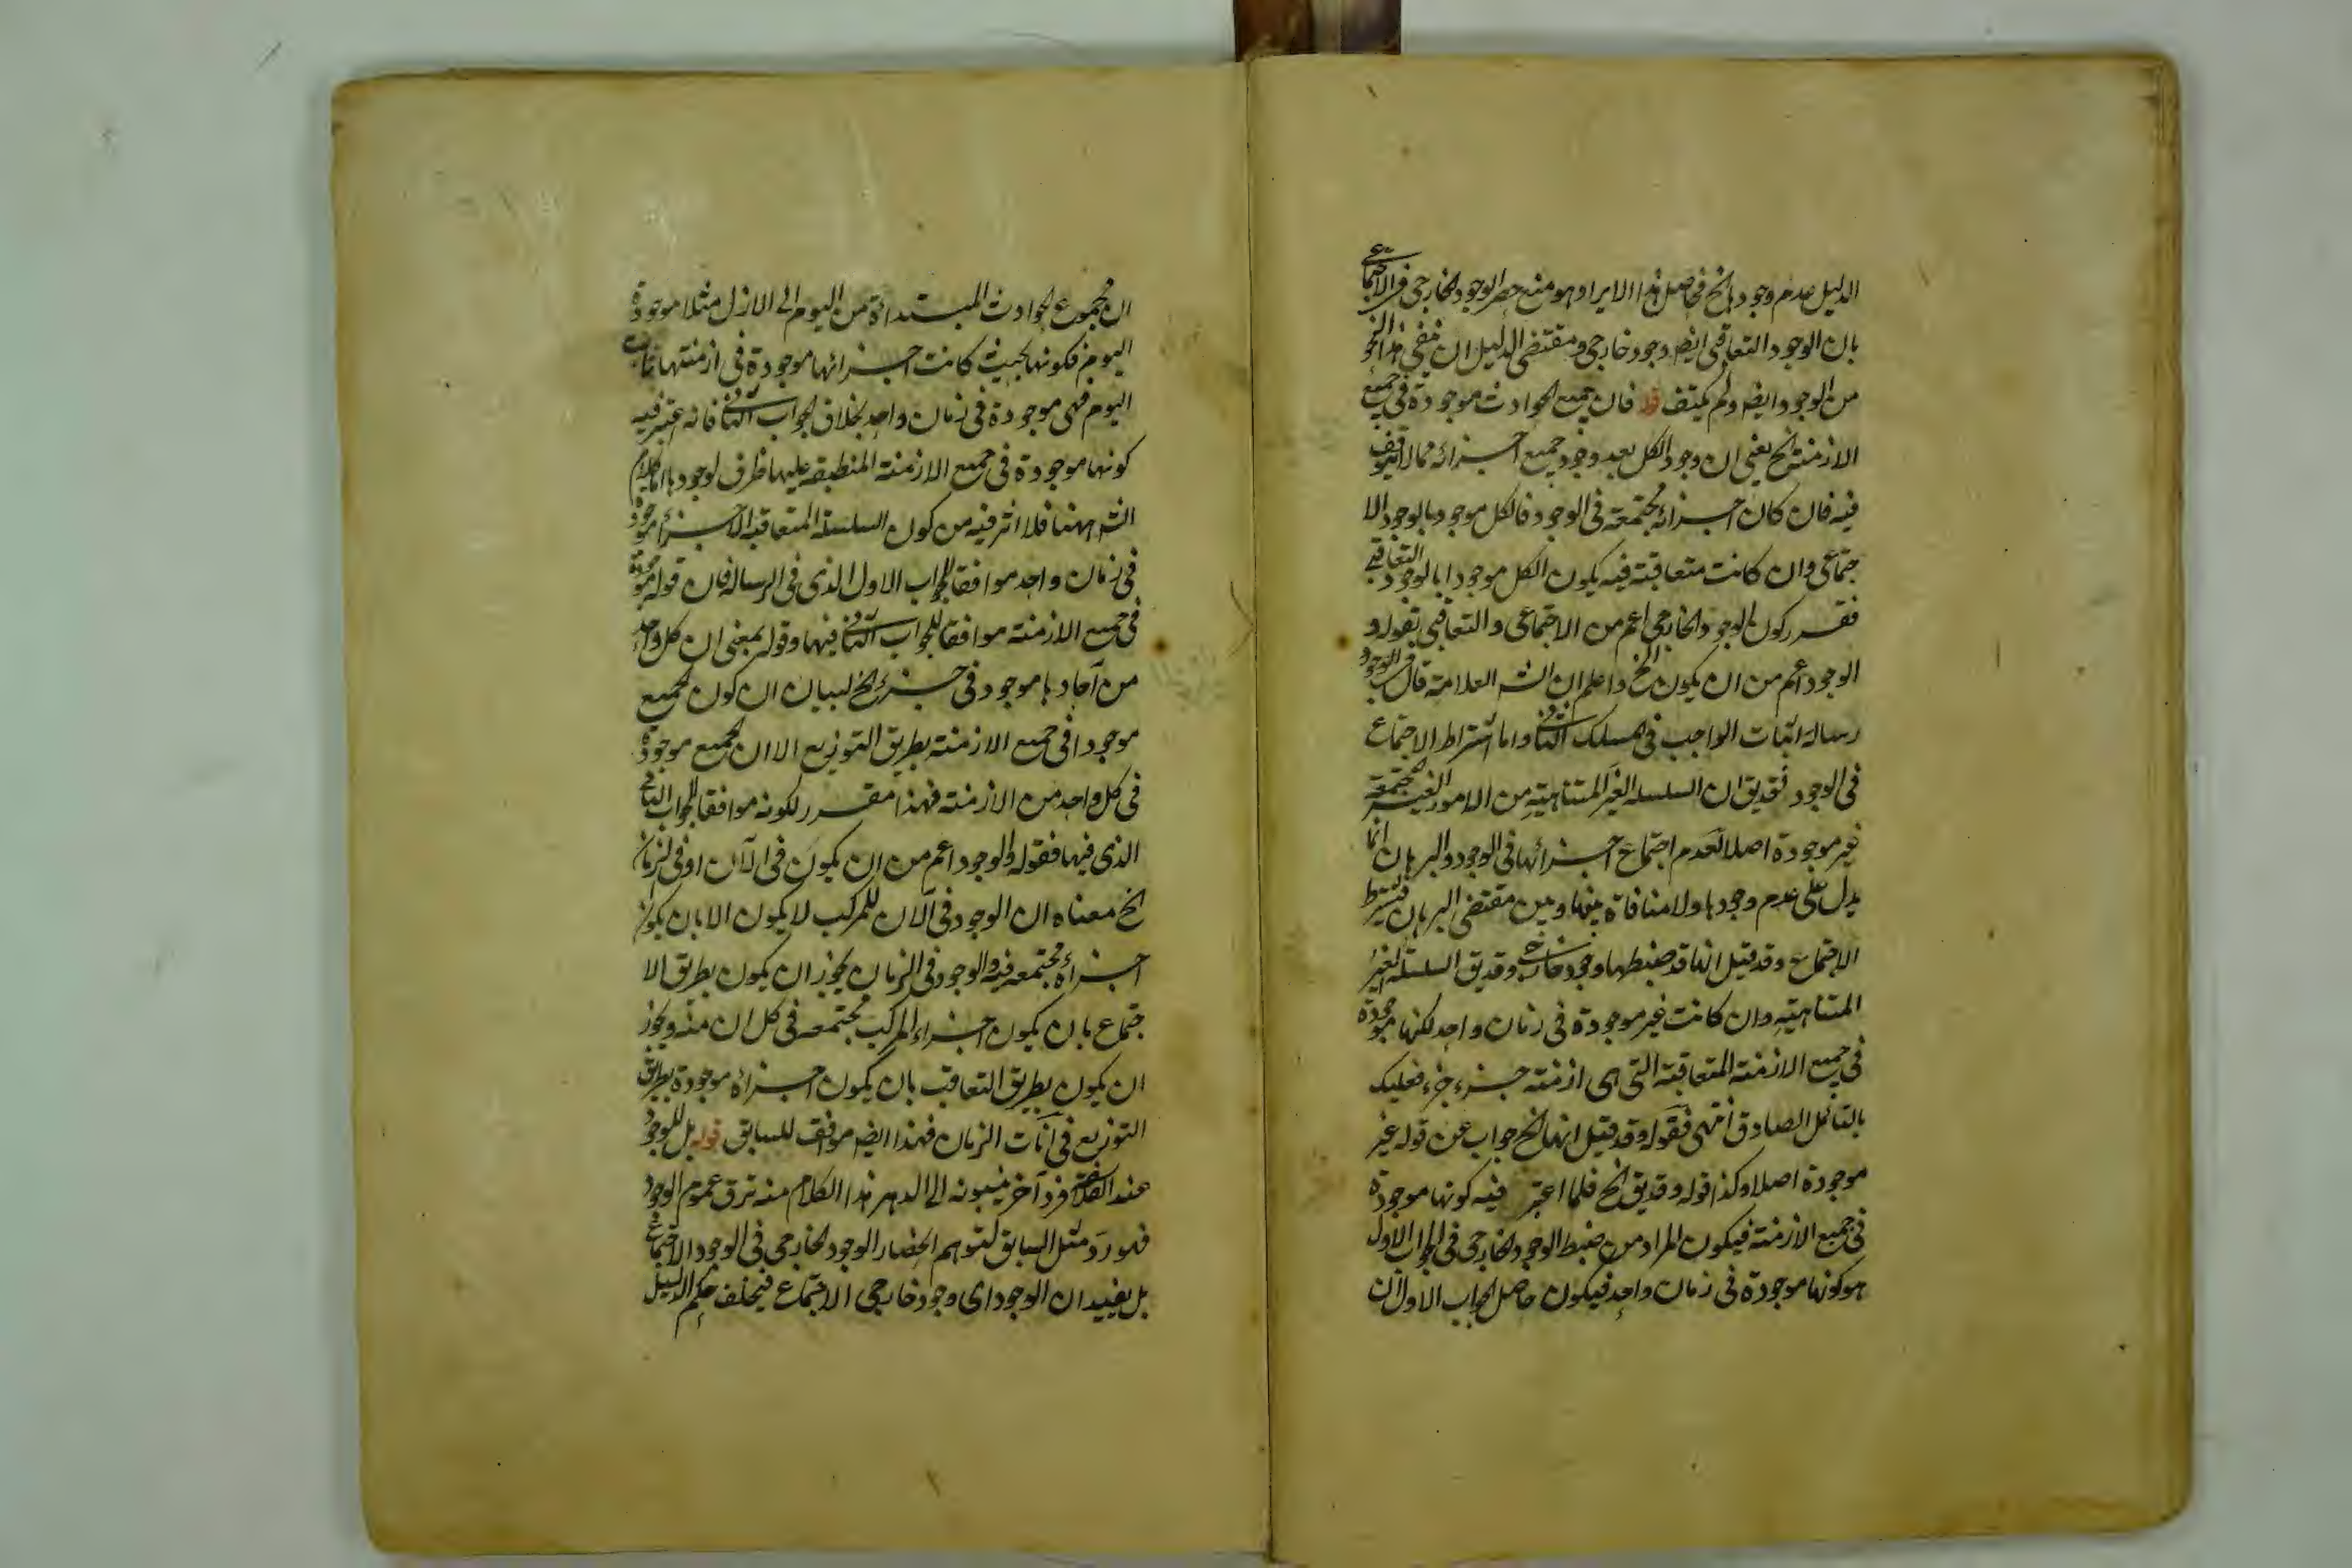 الدليل عدم وجودها الخ فحاصل هذا الايراد هو منع حصر الوجود الخارجى فى الاجتماعى
بان الوجود التعاقبى ايضا وجود خارجى ومقتضى الدليل ان ينفى هذا النحو
من الوجود ايضا ولم يكتف قوله فان جميع الحوادث موجودة فى جميع
الازمنة الخ يعنى ان وجود الكل بعد وجود جميع اجزائه مما لا يتوقف
فيه فان كان اجزائه مجتمعة فى الوجود فالكل موجود بالوجود الا
جتماعى وان كانت متعاقبة فيه يكون الكل موجودا بالوجود التعاقبى
فقرر كون الوجود الخارجى اعم من الاجتماعى والتعاقبى بقوله و
الوجود اعم من ان يكون الخ واعلم ان الشه العلامة قال
رسالة اثبات الواجب فى المسلك الثانى واما اشتراط الاجتماع
فى الوجود فقد يق ان السلسلة الغير المتناهية من الامور الغير المجتمعة
غير موجودة اصلا لعدم اجتماع اجزائها فى الوجود والبرهان انما
يدل على عدم وجودها ولا منافاة بينها وبين مقتضى البرهان فيشترط
الاجتماع وقد قيل انها قد ضبطها وجود خارجى وقد يق السلسلة الغير
المتناهية وان كانت غير موجودة فى زمان واحد لكنها موجودة
فى جميع الازمنة المتعاقبة التى هى ازمنة جزء جزء فعليك
بالتأمل الصادق انتهى فقوله وقد قيل انها الخ جواب عن قوله غير
موجودة اصلا وكذا قوله وقد يق الخ فلما اعتبر فيه كونها موجودة
فى جميع الازمنة فيكون المراد من ضبط الوجود الخارجى فى الجواب الاول
هو كونها موجودة فى زمان واحد فيكون حاصل الجواب الاول ان
ان مجموع الحوادث المبتداءة من اليوم الى الازل مثلا موجودة
اليوم فكونها بحيث كانت اجزائها موجودة فى ازمنتها ثابت
اليوم فهى موجودة فى زمان واحد بخلاف الجواب الثانى فانه اعتبر فيه
كونها موجودة فى جميع الازمنة المنطبقة عليها ظرف لوجودها اما كلام
الشه ههنا فلا اثر فيه من كون السلسلة المتعاقبة الاجزاء موجودة
فى زمان واحد موافقا للجواب الاول الذى فى الرسالة فان قوله موجودة
فى جميع الازمنة موافقا للجواب الثانى فيها وقوله بمعنى ان كل واحد
من آحادها موجود فى جزء الخ لبيان ان كون الجميع
موجودا فى جميع الازمنة بطريق التوزيع لا ان الجميع موجودة
فى كل واحد من الازمنة فهذا مقرر لكونه موافقا للجواب الثانى
الذى فيها فقوله والوجود اعم من ان يكون فى الآن او فى الزمان
الخ معناه ان الوجود فى الآن للمركب لا يكون الا بان يكون
اجزاؤه مجتمعة فيه والوجود فى الزمان يجوز ان يكون بطريق الا
جتماع بان يكون اجزاء المركب مجتمعة فى كل ان منه ويجوز
ان يكون بطريق التعاقب بان يكون اجزاؤه موجودة بطريق
التوزيع فى آنات الزمان فهذا ايضا موافق للسابق قوله بل للوجود
عند الفلاسفة فرد آخر ينسبونه الى الدهر هذا الكلام منه ترق عموم الوجود
فهو رد مثل السابق لتوهم انحصار الوجود الخارجى فى الوجود الاجتماعى
بل يفيد ان الوجود اى وجود خارجى الاجتماع فيخلف حكم الدليل